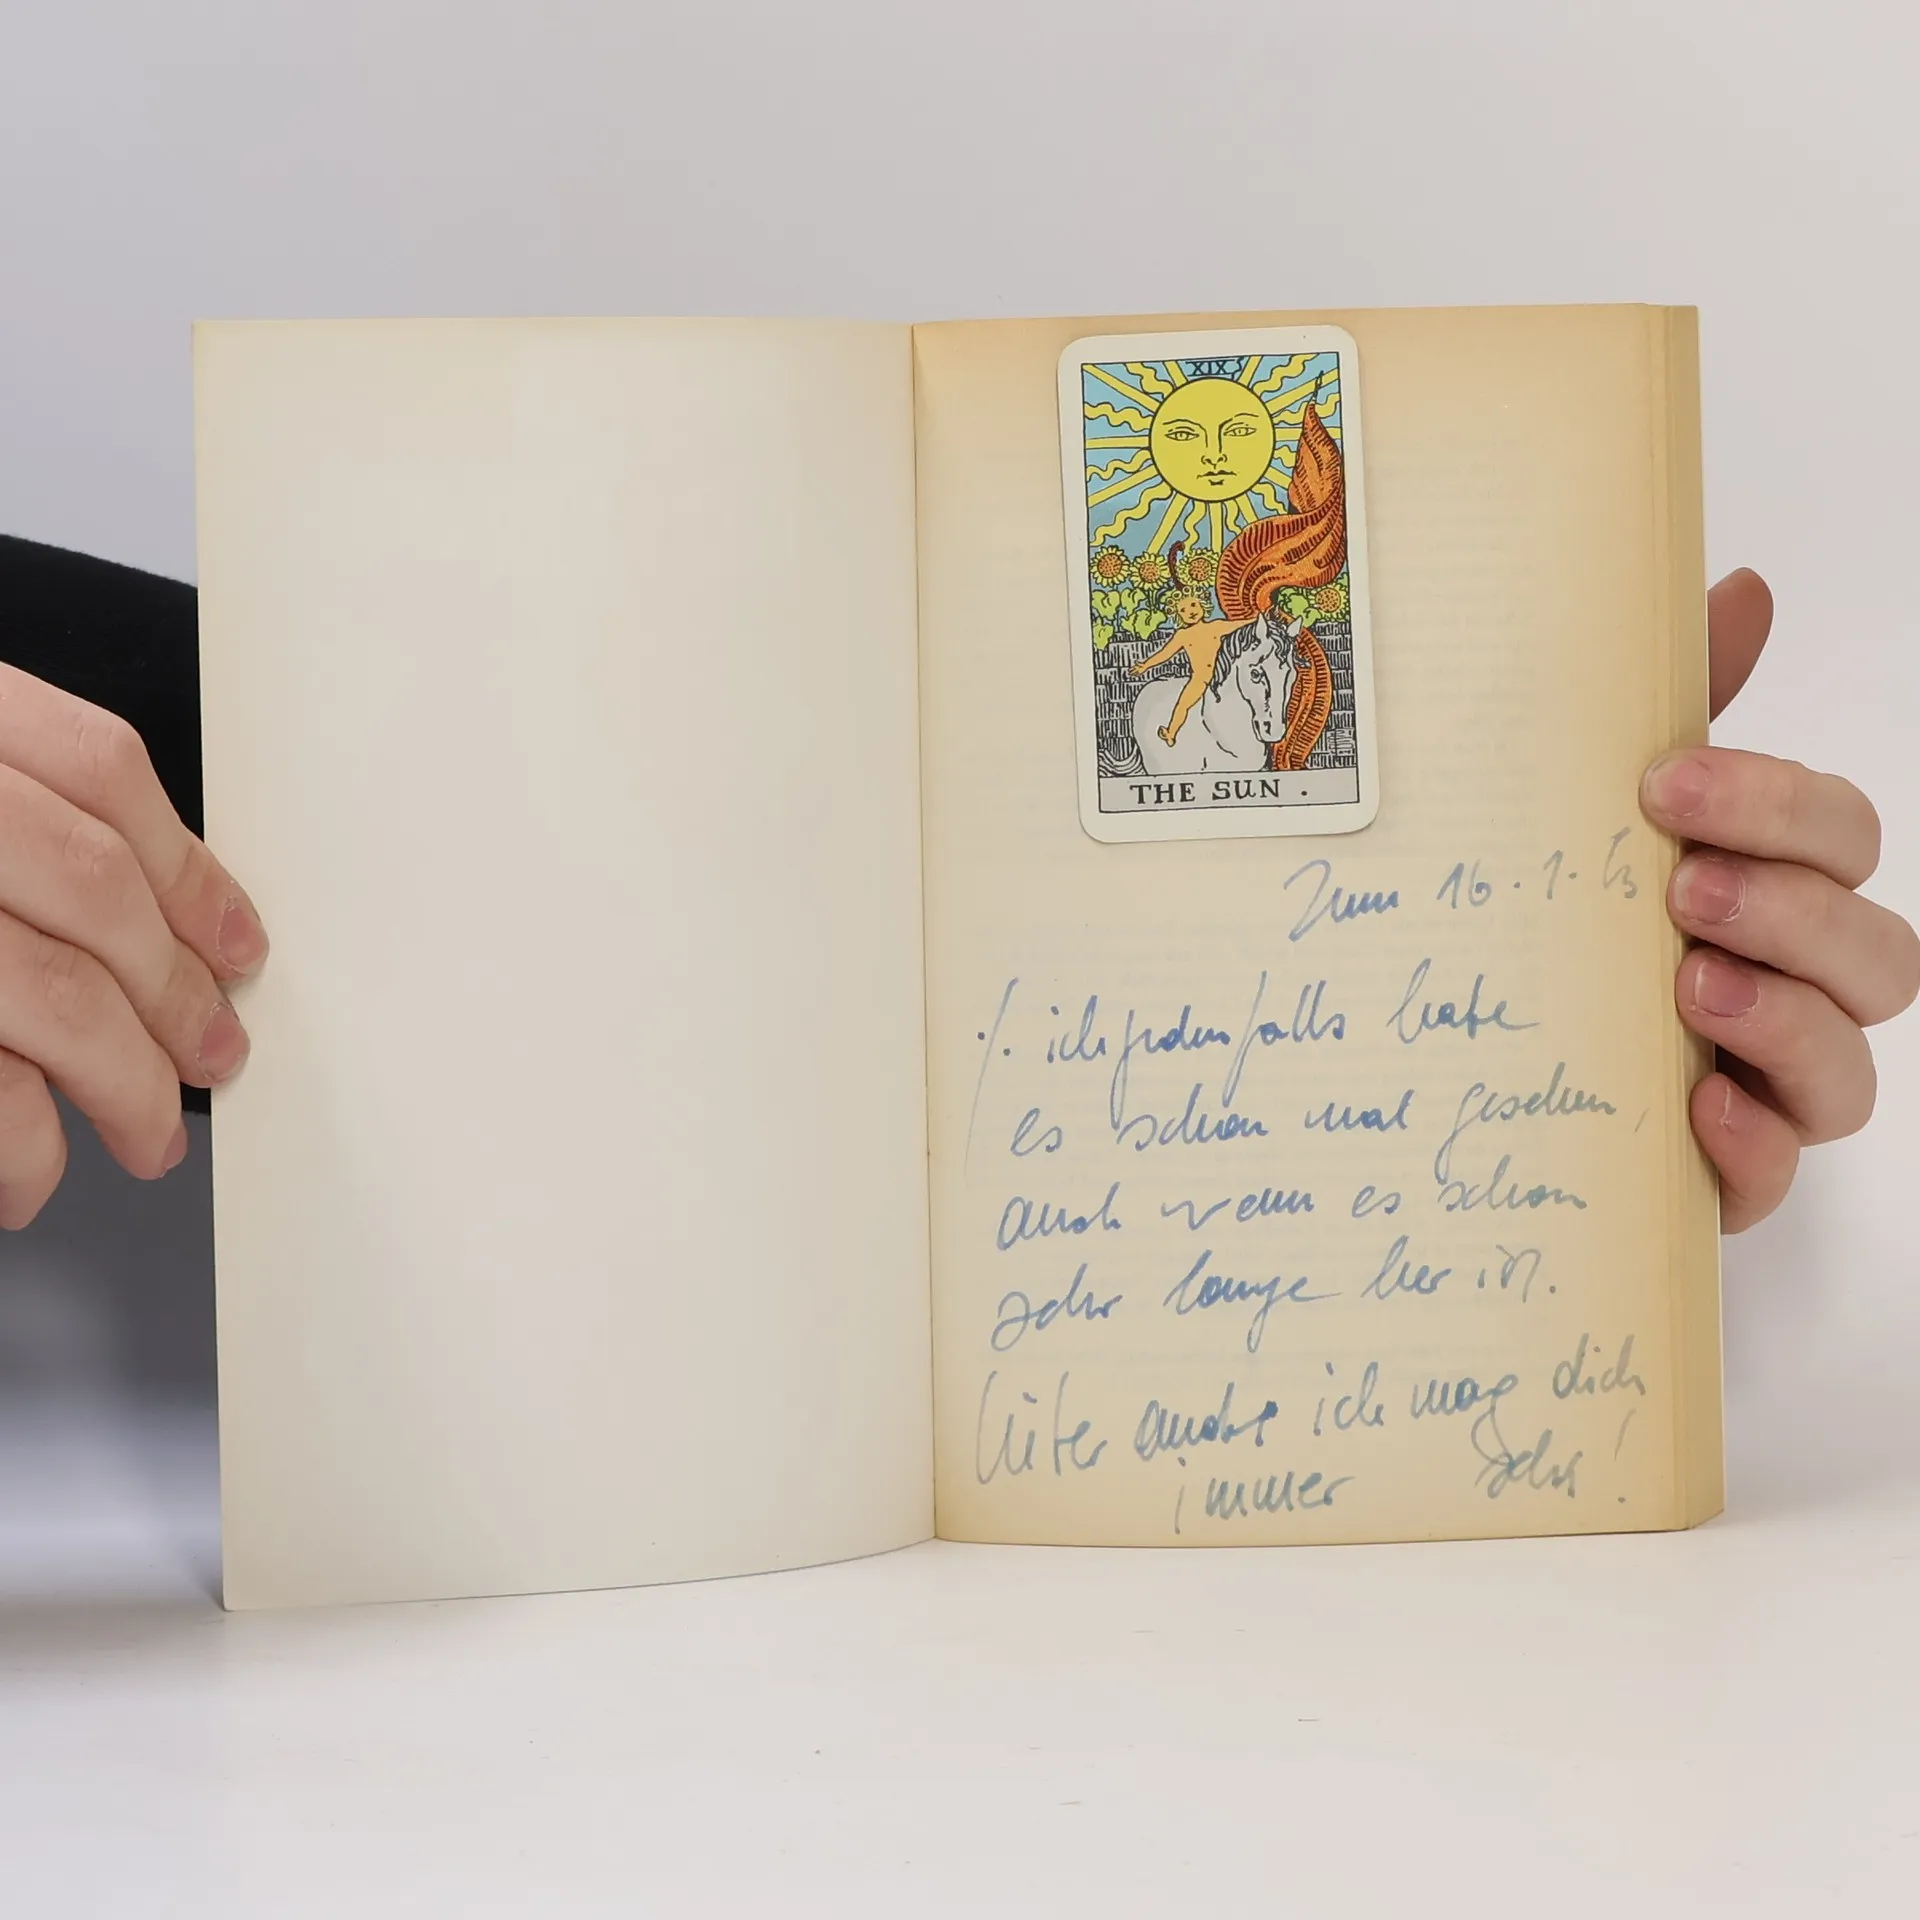 XIX
THE SUN .
Zum 16.1.
ich jedenfalls habe
es schon mal gesehen,
auch wenn es schon
sehr lange her ist.
ich mag dich
immer sehr!